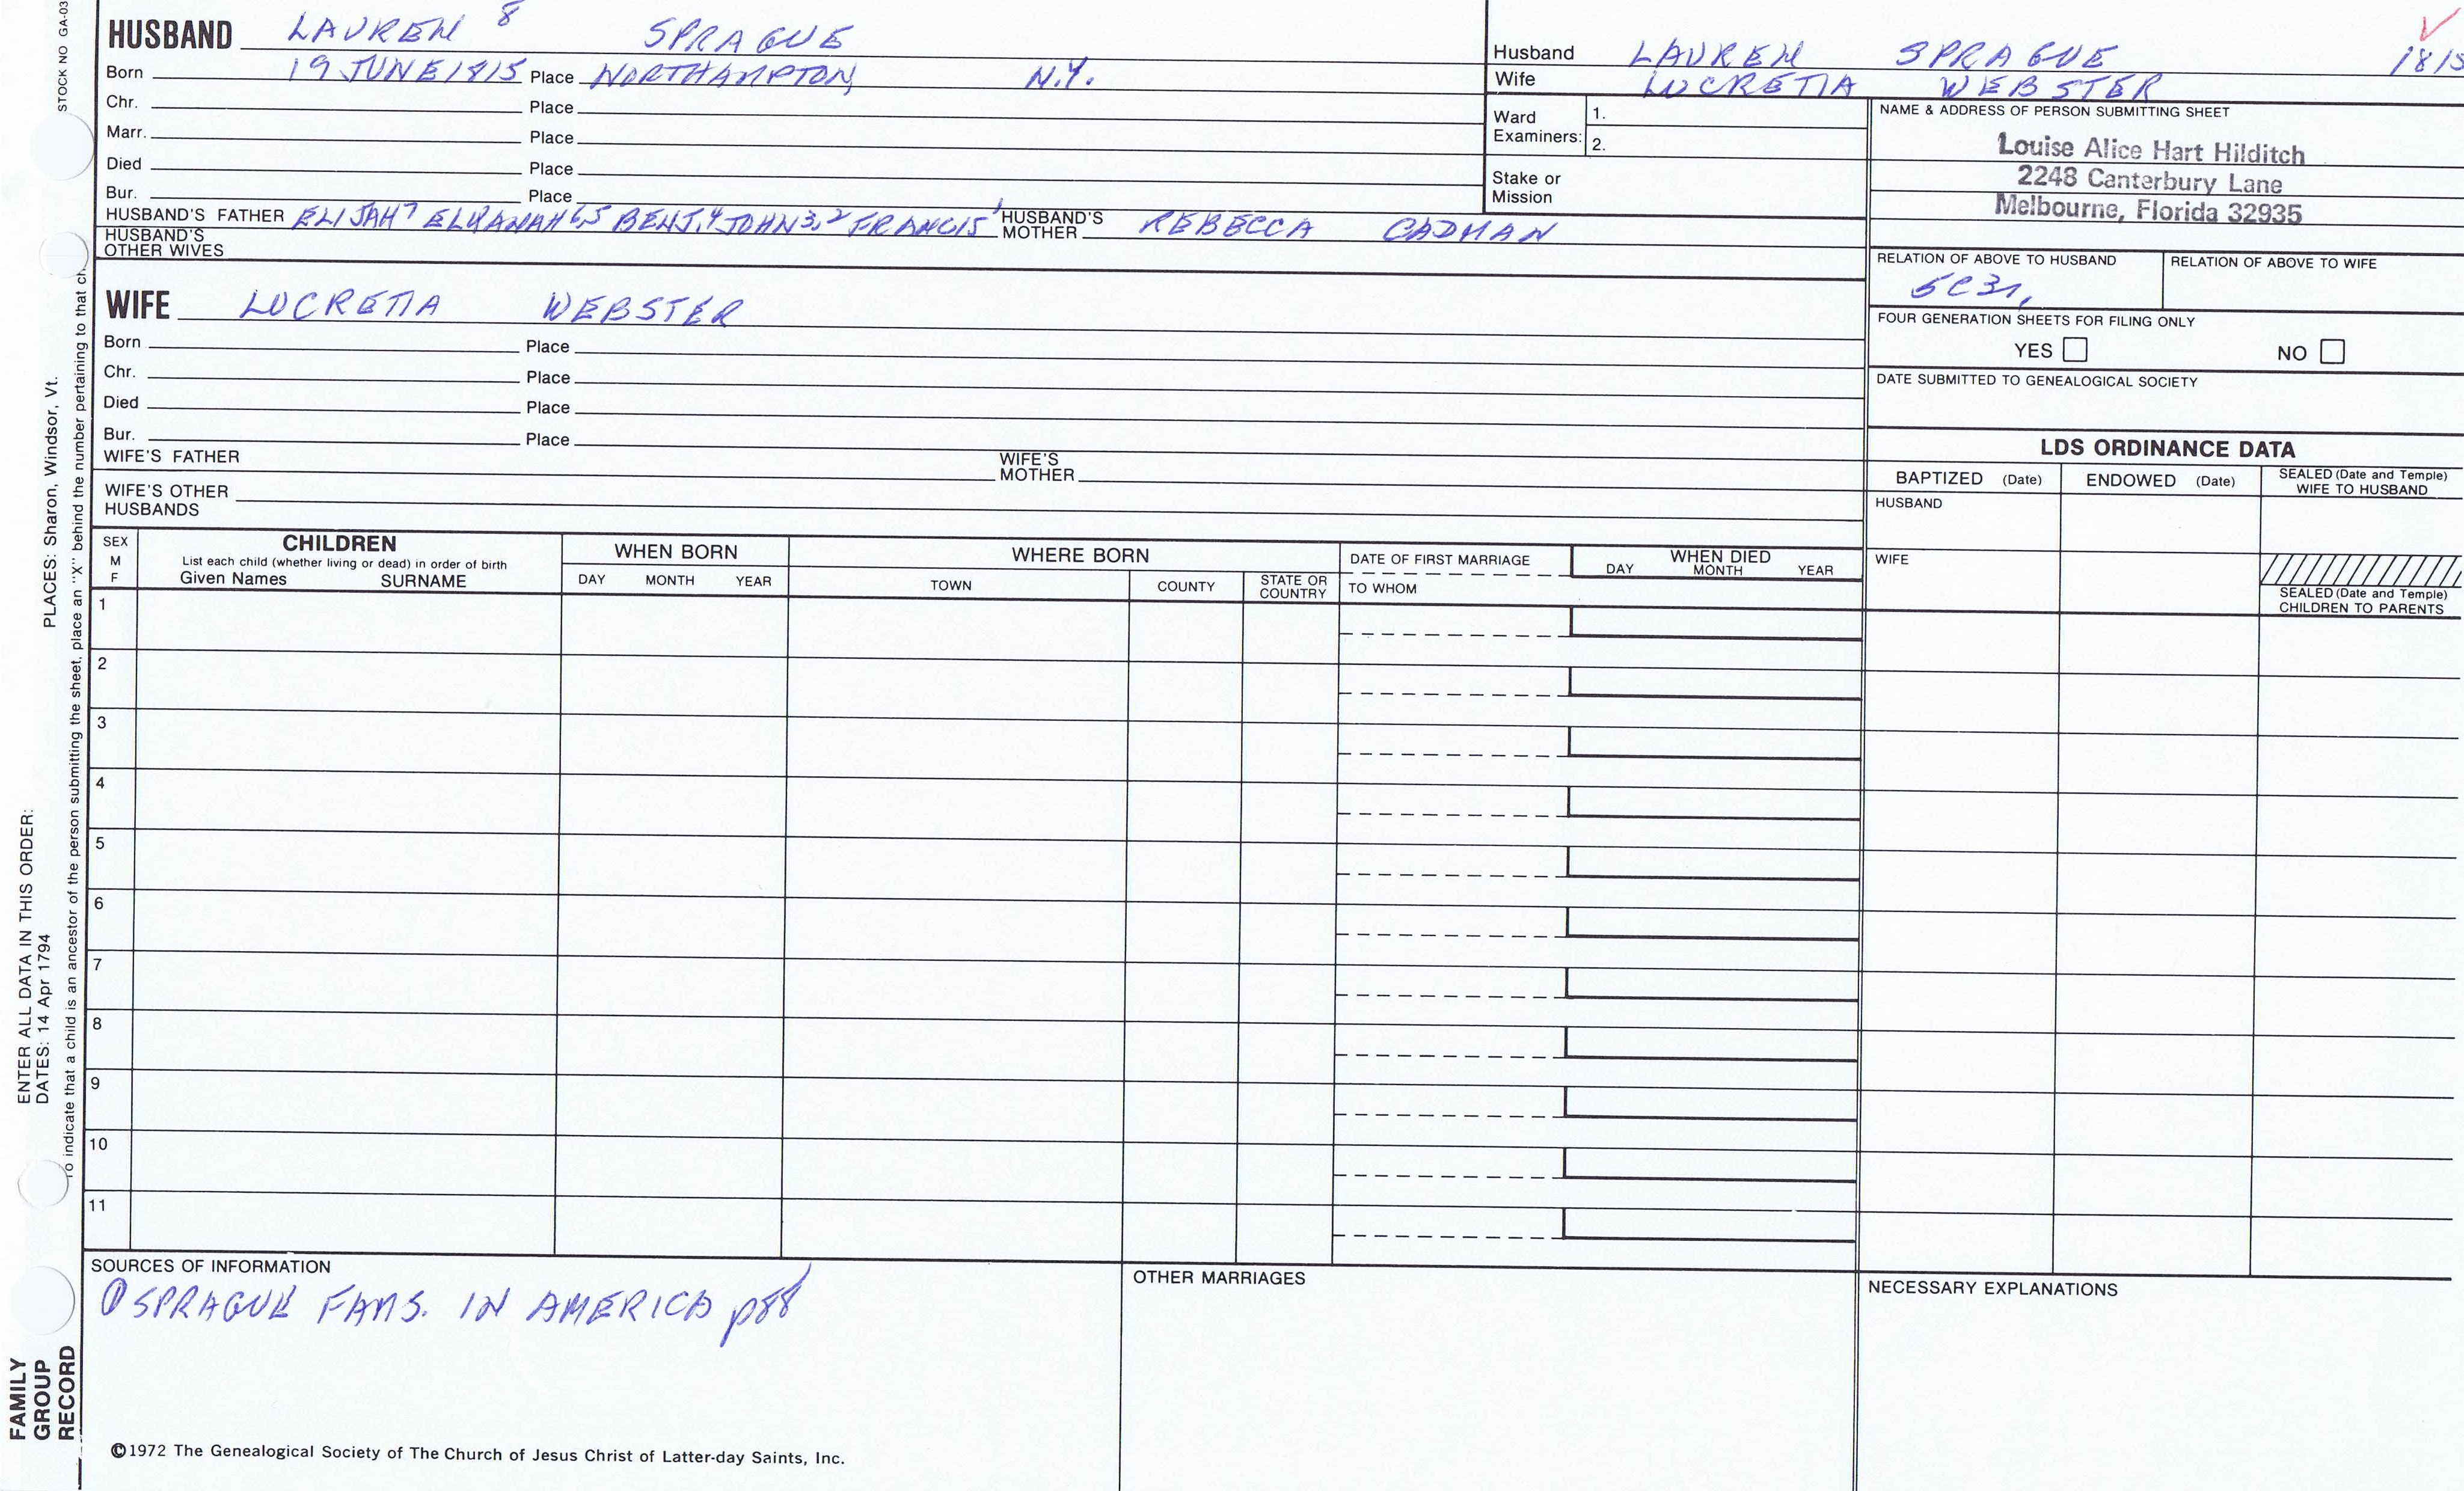 STOCK NO GA-03
HUSBAND LAUREN 8 SPRAGUE
Born 19 JUNE 1815 Place NORTHAMPTON, N.Y.
Chr. Place
Marr. Place
Died Place
Bur. Place
HUSBAND'S FATHER ELIJAH7 ELKANAH6,5 BENJ,4 JOHN3,2 FRANCIS1 HUSBAND'S MOTHER REBECCA CADMAN
HUSBAND'S OTHER WIVES
WIFE LUCRETIA WEBSTER
Born Place
Chr. Place
Died Place
Bur. Place
WIFE'S FATHER WIFE'S MOTHER
WIFE'S OTHER HUSBANDS
Husband LAUREN SPRAGUE 1815
Wife LUCRETIA WEBSTER
Ward Examiners: 1.
2.
Stake or Mission
NAME & ADDRESS OF PERSON SUBMITTING SHEET
Louise Alice Hart Hilditch
2248 Canterbury Lane
Melbourne, Florida 32935
RELATION OF ABOVE TO HUSBAND RELATION OF ABOVE TO WIFE
5C3r,
FOUR GENERATION SHEETS FOR FILING ONLY
YES NO
DATE SUBMITTED TO GENEALOGICAL SOCIETY
LDS ORDINANCE DATA
BAPTIZED (Date) ENDOWED (Date) SEALED (Date and Temple) WIFE TO HUSBAND
HUSBAND
WIFE
SEALED (Date and Temple) CHILDREN TO PARENTS
SEX M F
CHILDREN
List each child (whether living or dead) in order of birth
Given Names SURNAME
WHEN BORN
DAY MONTH YEAR
WHERE BORN
TOWN COUNTY STATE OR COUNTRY
DATE OF FIRST MARRIAGE
TO WHOM
WHEN DIED
DAY MONTH YEAR
1
2
3
4
5
6
7
8
9
10
11
SOURCES OF INFORMATION
① SPRAGUE FAMS. IN AMERICA p88
OTHER MARRIAGES
NECESSARY EXPLANATIONS
©1972 The Genealogical Society of The Church of Jesus Christ of Latter-day Saints, Inc.
FAMILY
GROUP
RECORD
ENTER ALL DATA IN THIS ORDER:
DATES: 14 Apr 1794
PLACES: Sharon, Windsor, Vt.
To indicate that a child is an ancestor of the person submitting the sheet, place an "X" behind the number pertaining to that ch